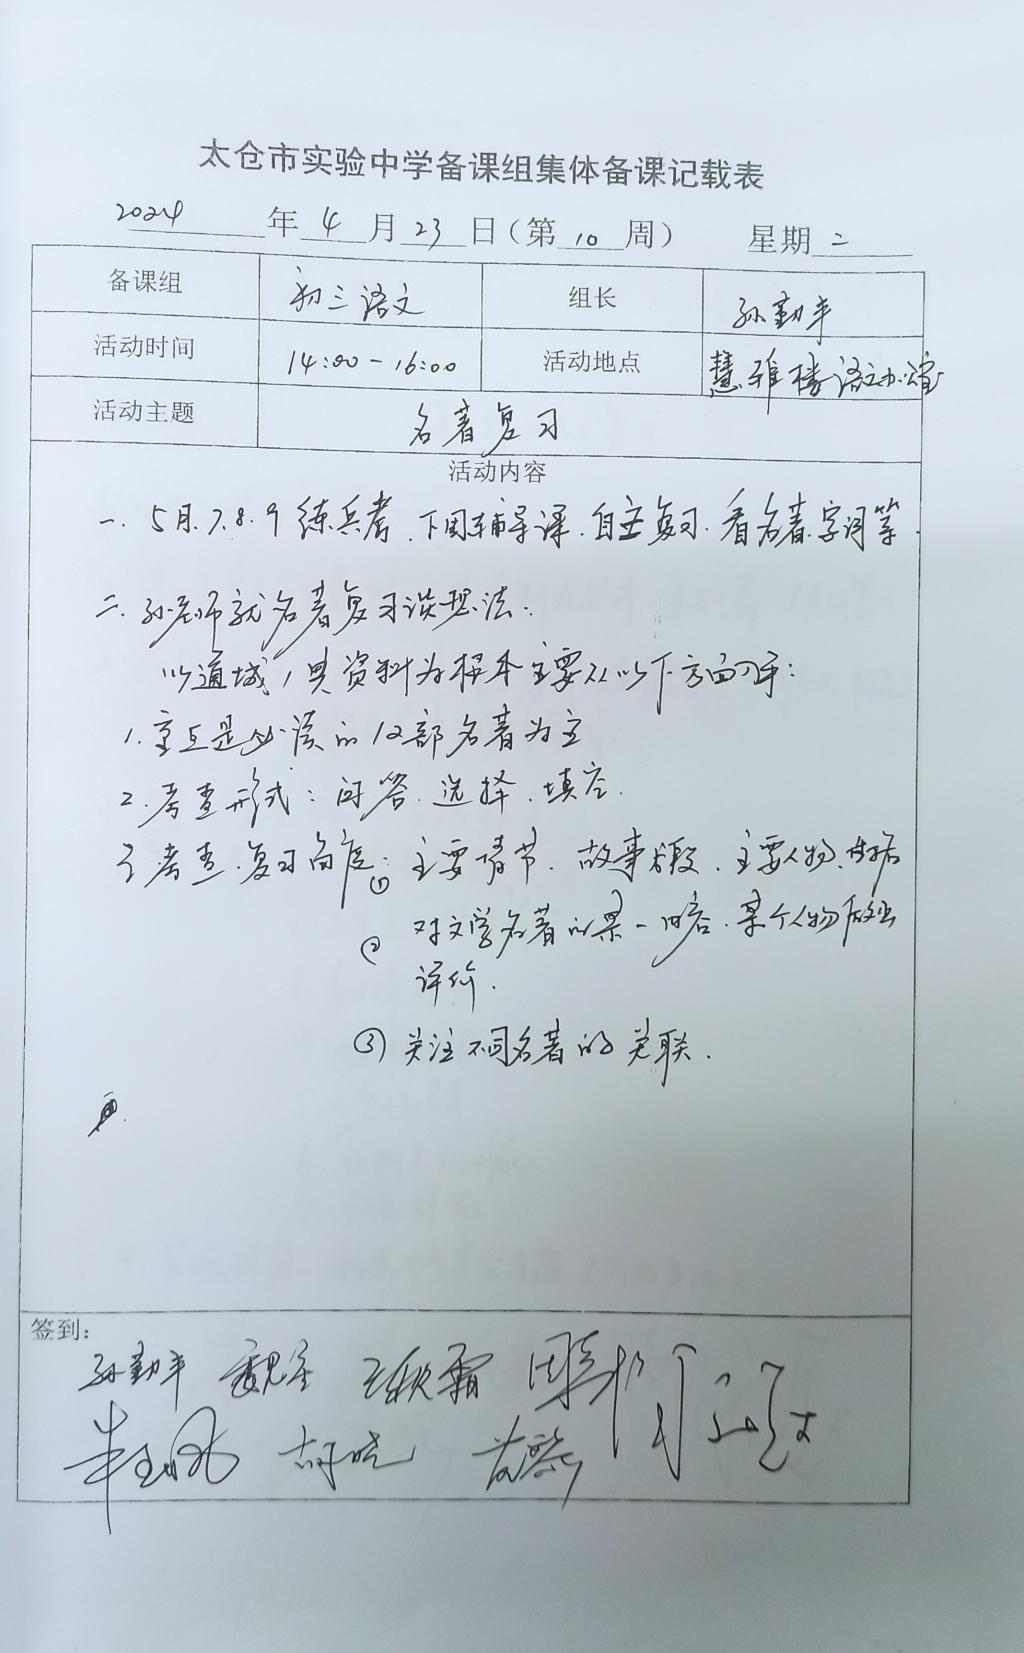 太仓市实验中学备课组集体备课记载表
2024年4月23日(第10周) 星期二
备课组 初三语文 组长 孙勤丰
活动时间 14:00-16:00 活动地点 慧雅楼语文办公室
活动主题 名著复习
活动内容
一. 5月.7.8.9练兵考.下周辅导课.自主复习.看名著.字词等.
二.孙老师就名著复习谈想法:
以通城1典资料为根本主要从以下方面入手:
1.重点是必读的12部名著为主
2.考查形式:问答.选择.填空.
3.考查.复习角度:①主要情节.故事片段.主要人物.
②对文学名著的某一内容.某个人物做出
评价.
③关注不同名著的关联.
签到:
孙勤丰 魏圣 王秋霜
胡晓